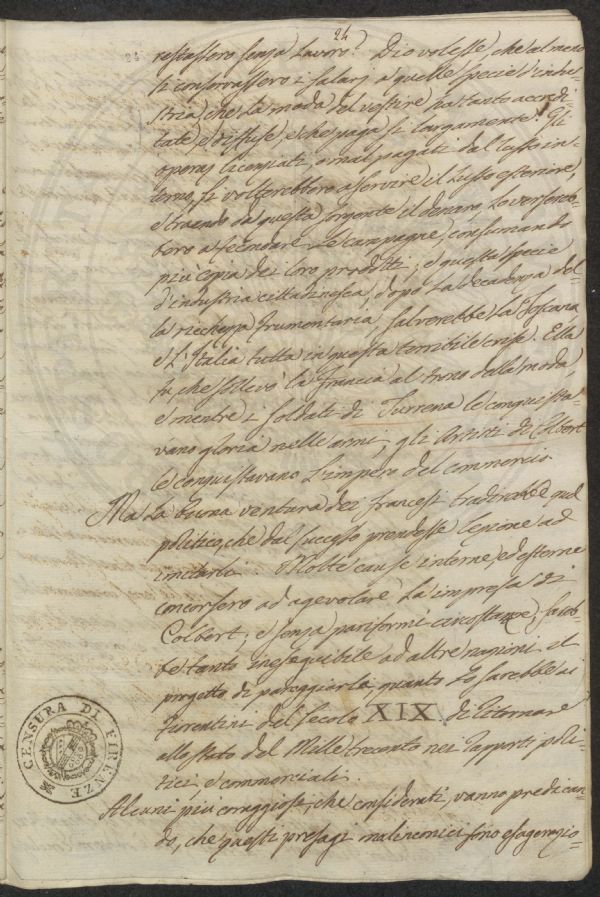 24
24
restassero senza lavoro? Dio volesse che almeno
si conservassero i salarj a quelle specie d'indu-
stria, che la moda del vestire ha tanto accredi-
tate, e diffuse, e che paga sì largamente. Gli
operaj licenziati, o mal pagati dal lusso in-
terno, si volterebbero a servire il lusso esteriore,
e traendo da questa sorgente il denaro, lo versereb-
bero a fecondare le campagne, consumando
più copia dei loro prodotti, e questa specie
d'industria cittadinesca, dopo la decadenza del-
la ricchezza frumentaria, salverebbe la Toscana
e l'Italia tutta in questa terribile crise. Ella
fu, che sollevò la Francia al trono della moda
e mentre i soldati di Turrena le conquista-
vano gloria nelle armi, gli Artisti di Colbert
le conquistavano l'impero del commercio.
Ma la buona ventura dei francesi tradirebbe quel
politico, che dal successo prendesse lezione ad
imitarli. Molte cause interne, ed esterne
concorsero ad agevolare la impresa di
Colbert; e senza pariformi circostanze, sareb-
be tanto ineseguibile ad altre nazioni il
progetto di pareggiarla, quanto lo sarebbe ai
Fiorentini del secolo XIX di ritornare
allo stato del Mille trecento nei rapporti poli-
tici, e commerciali.
Alcuni più coraggiosi, che considerati, vanno predican-
do, che questi presagi malinconici sono esagerazio-
CENSURA DI FIRENZE